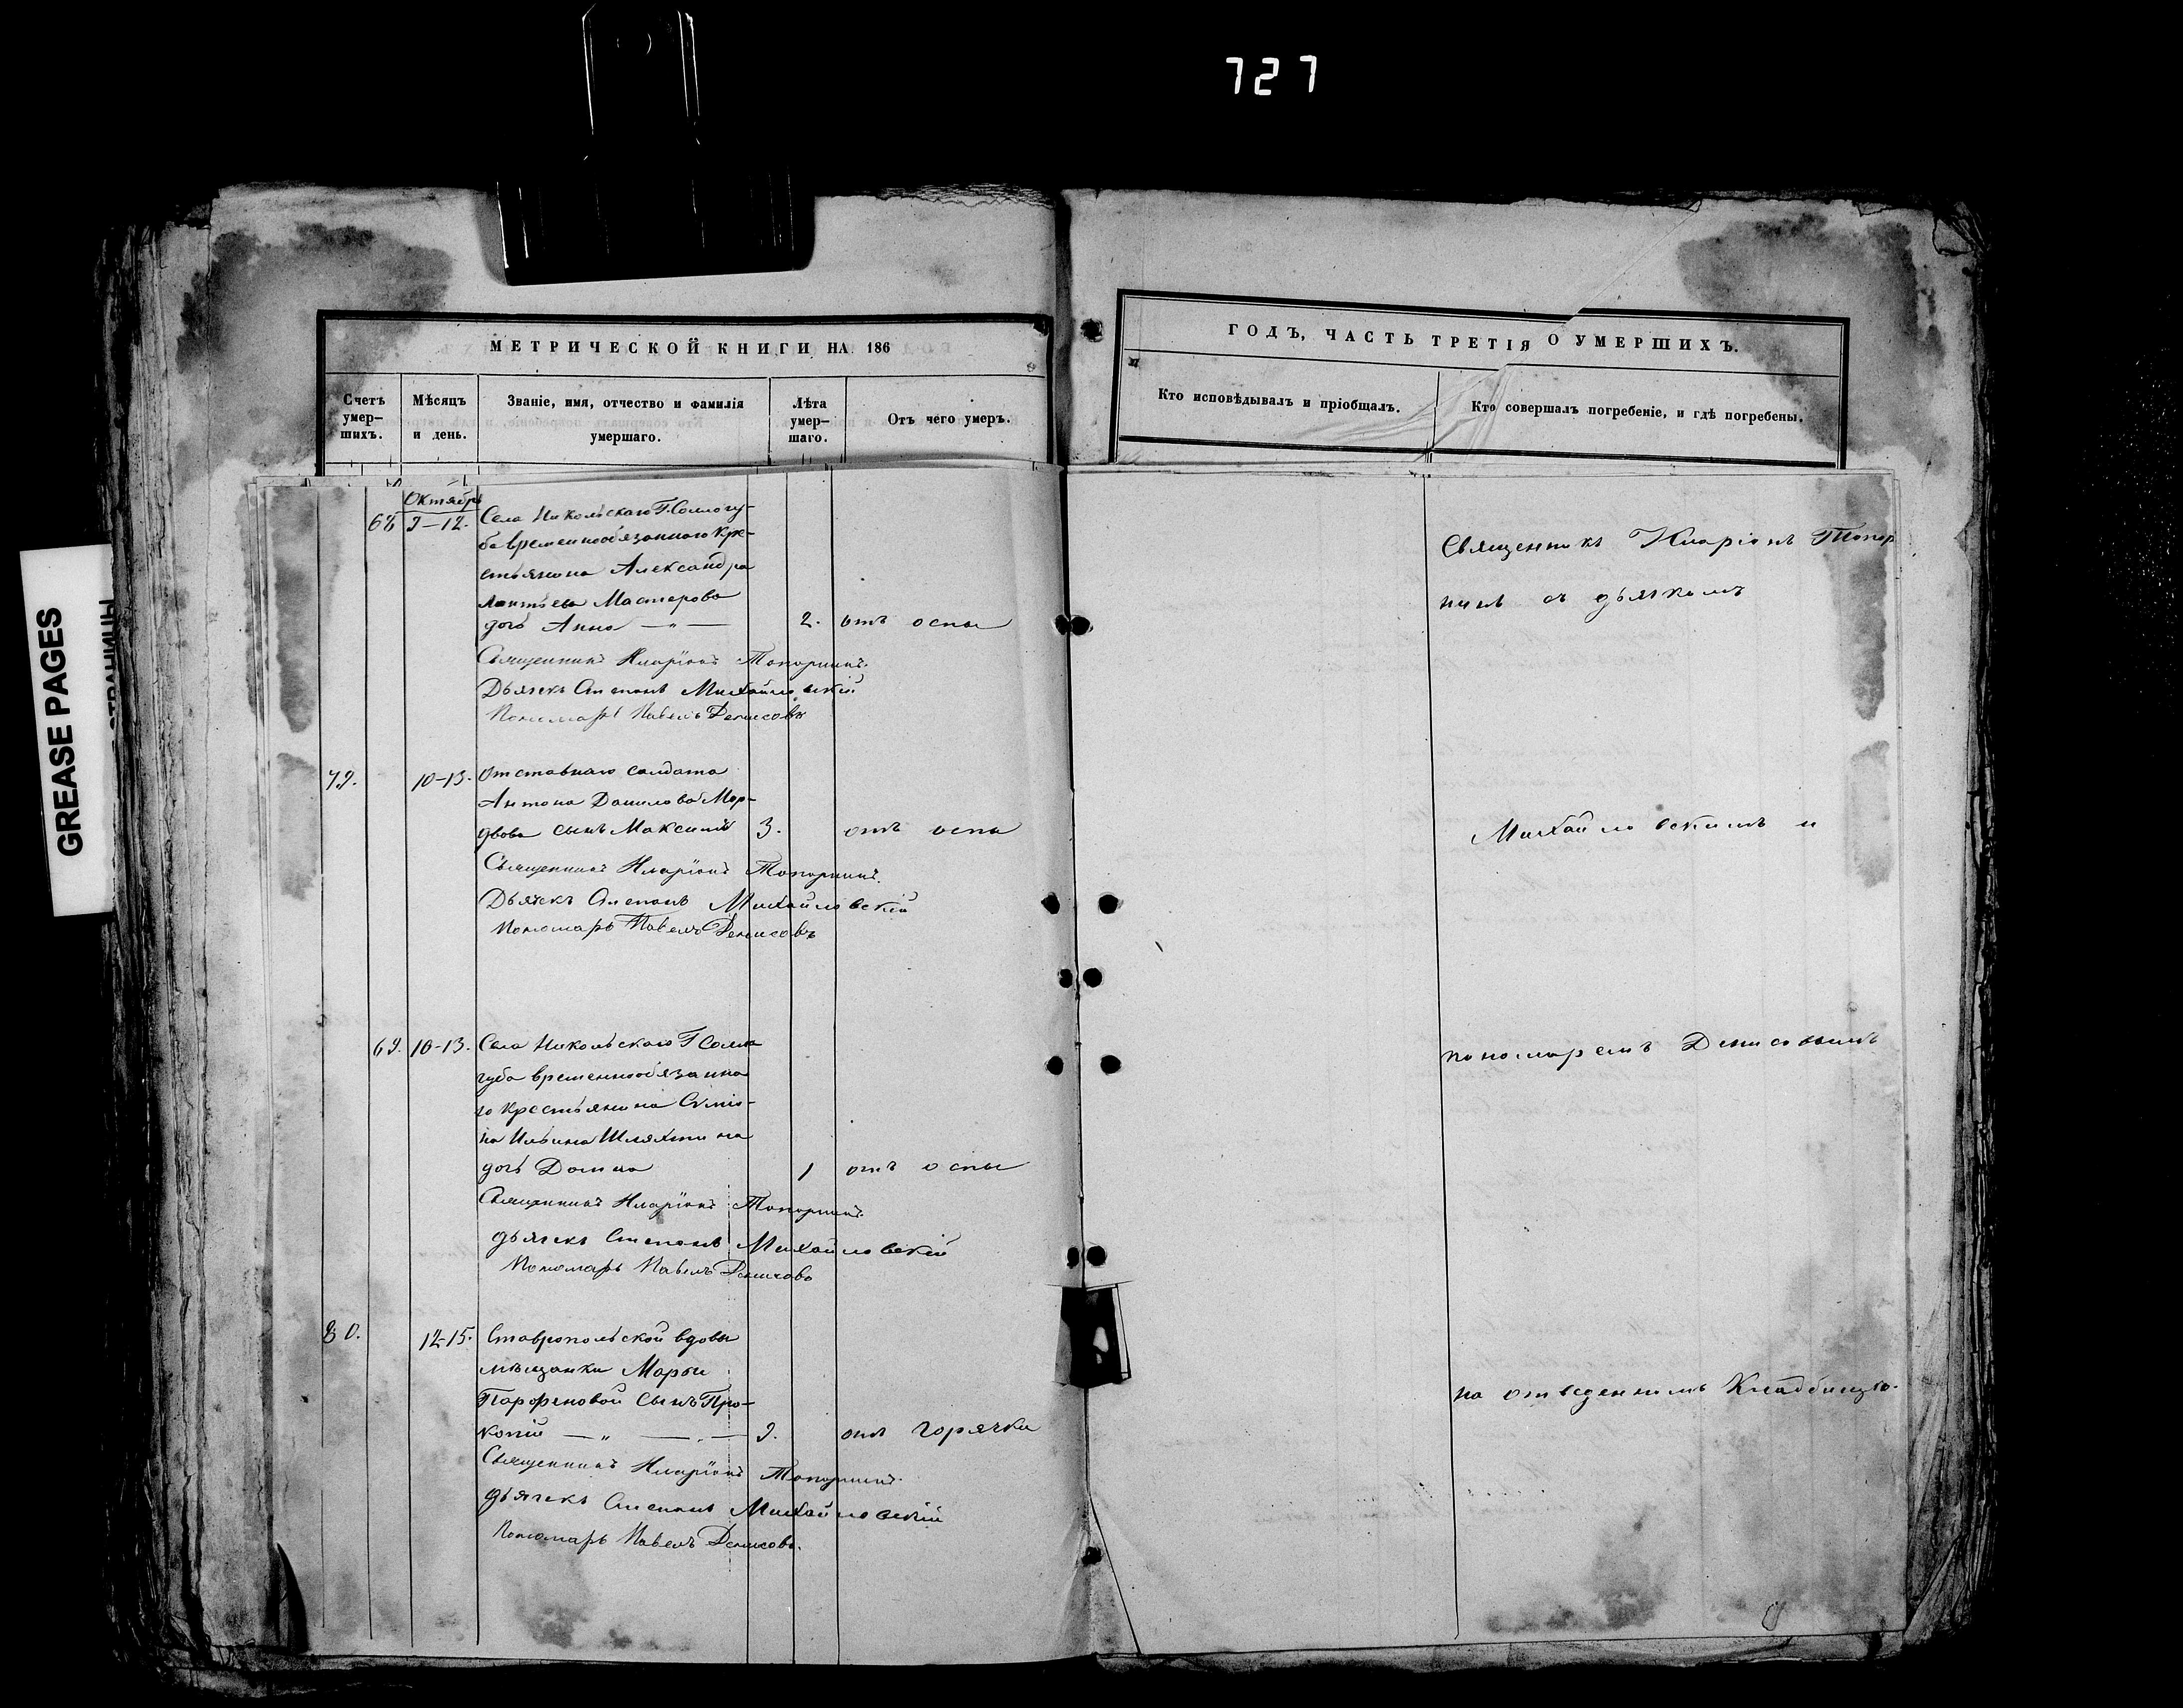 727
GREASE PAGES
МЕТРИЧЕСКОЙ КНИГИ НА 186
ГОДЪ, ЧАСТЬ ТРЕТІЯ О УМЕРШИХЪ.
Счетъ умер-шихъ.
Мѣсяцъ и день.
Званіе, имя, отчество и фамилія умершаго.
Лѣта умер-шаго.
Отъ чего умеръ.
Кто исповѣдывалъ и пріобщалъ.
Кто совершалъ погребеніе, и гдѣ погребены.
Октябрь
68 9-12. Села Никольскаго Г. Сологу-
ба временнообязаннаго Кре-
стьянина Александра
Мастерова
дочь Анна — „ — 2. отъ оспы
Священникъ Иларіонъ Топорнинъ.
Дьячекъ Степанъ Михайловскій
Пономарь Павелъ Денисовъ
79. 10-13. Отставнаго солдата
Антона Данилова Мор-
двова сынъ Максимъ 3. отъ оспы
Священникъ Иларіонъ Топорнинъ.
Дьячекъ Степанъ Михайловскій
Пономарь Павелъ Денисовъ
69. 10-13. Села Никольскаго Г Соло
губа временнообязанна
го крестьянина Симіо-
на Ильина Шляхтина
дочь Домна 1 отъ оспы
Священникъ Иларіонъ Топорнинъ.
дьячекъ Степанъ Михайловскій
Пономарь Павелъ Денисовъ
80. 12-15. Ставропольской вдовы
мѣщанки Марьи
Парфеновой сынъ Про-
копій — „ — . — 9. отъ горячки
Священникъ Иларіонъ Топорнинъ.
дьячекъ Степанъ Михайловскій
Пономарь Павелъ Денисовъ.
Священникъ Иларіонъ Топор
нинъ съ дьячкомъ
Михайловскимъ и
пономаремъ Денисовымъ
на отведенномъ Кладбищѣ.